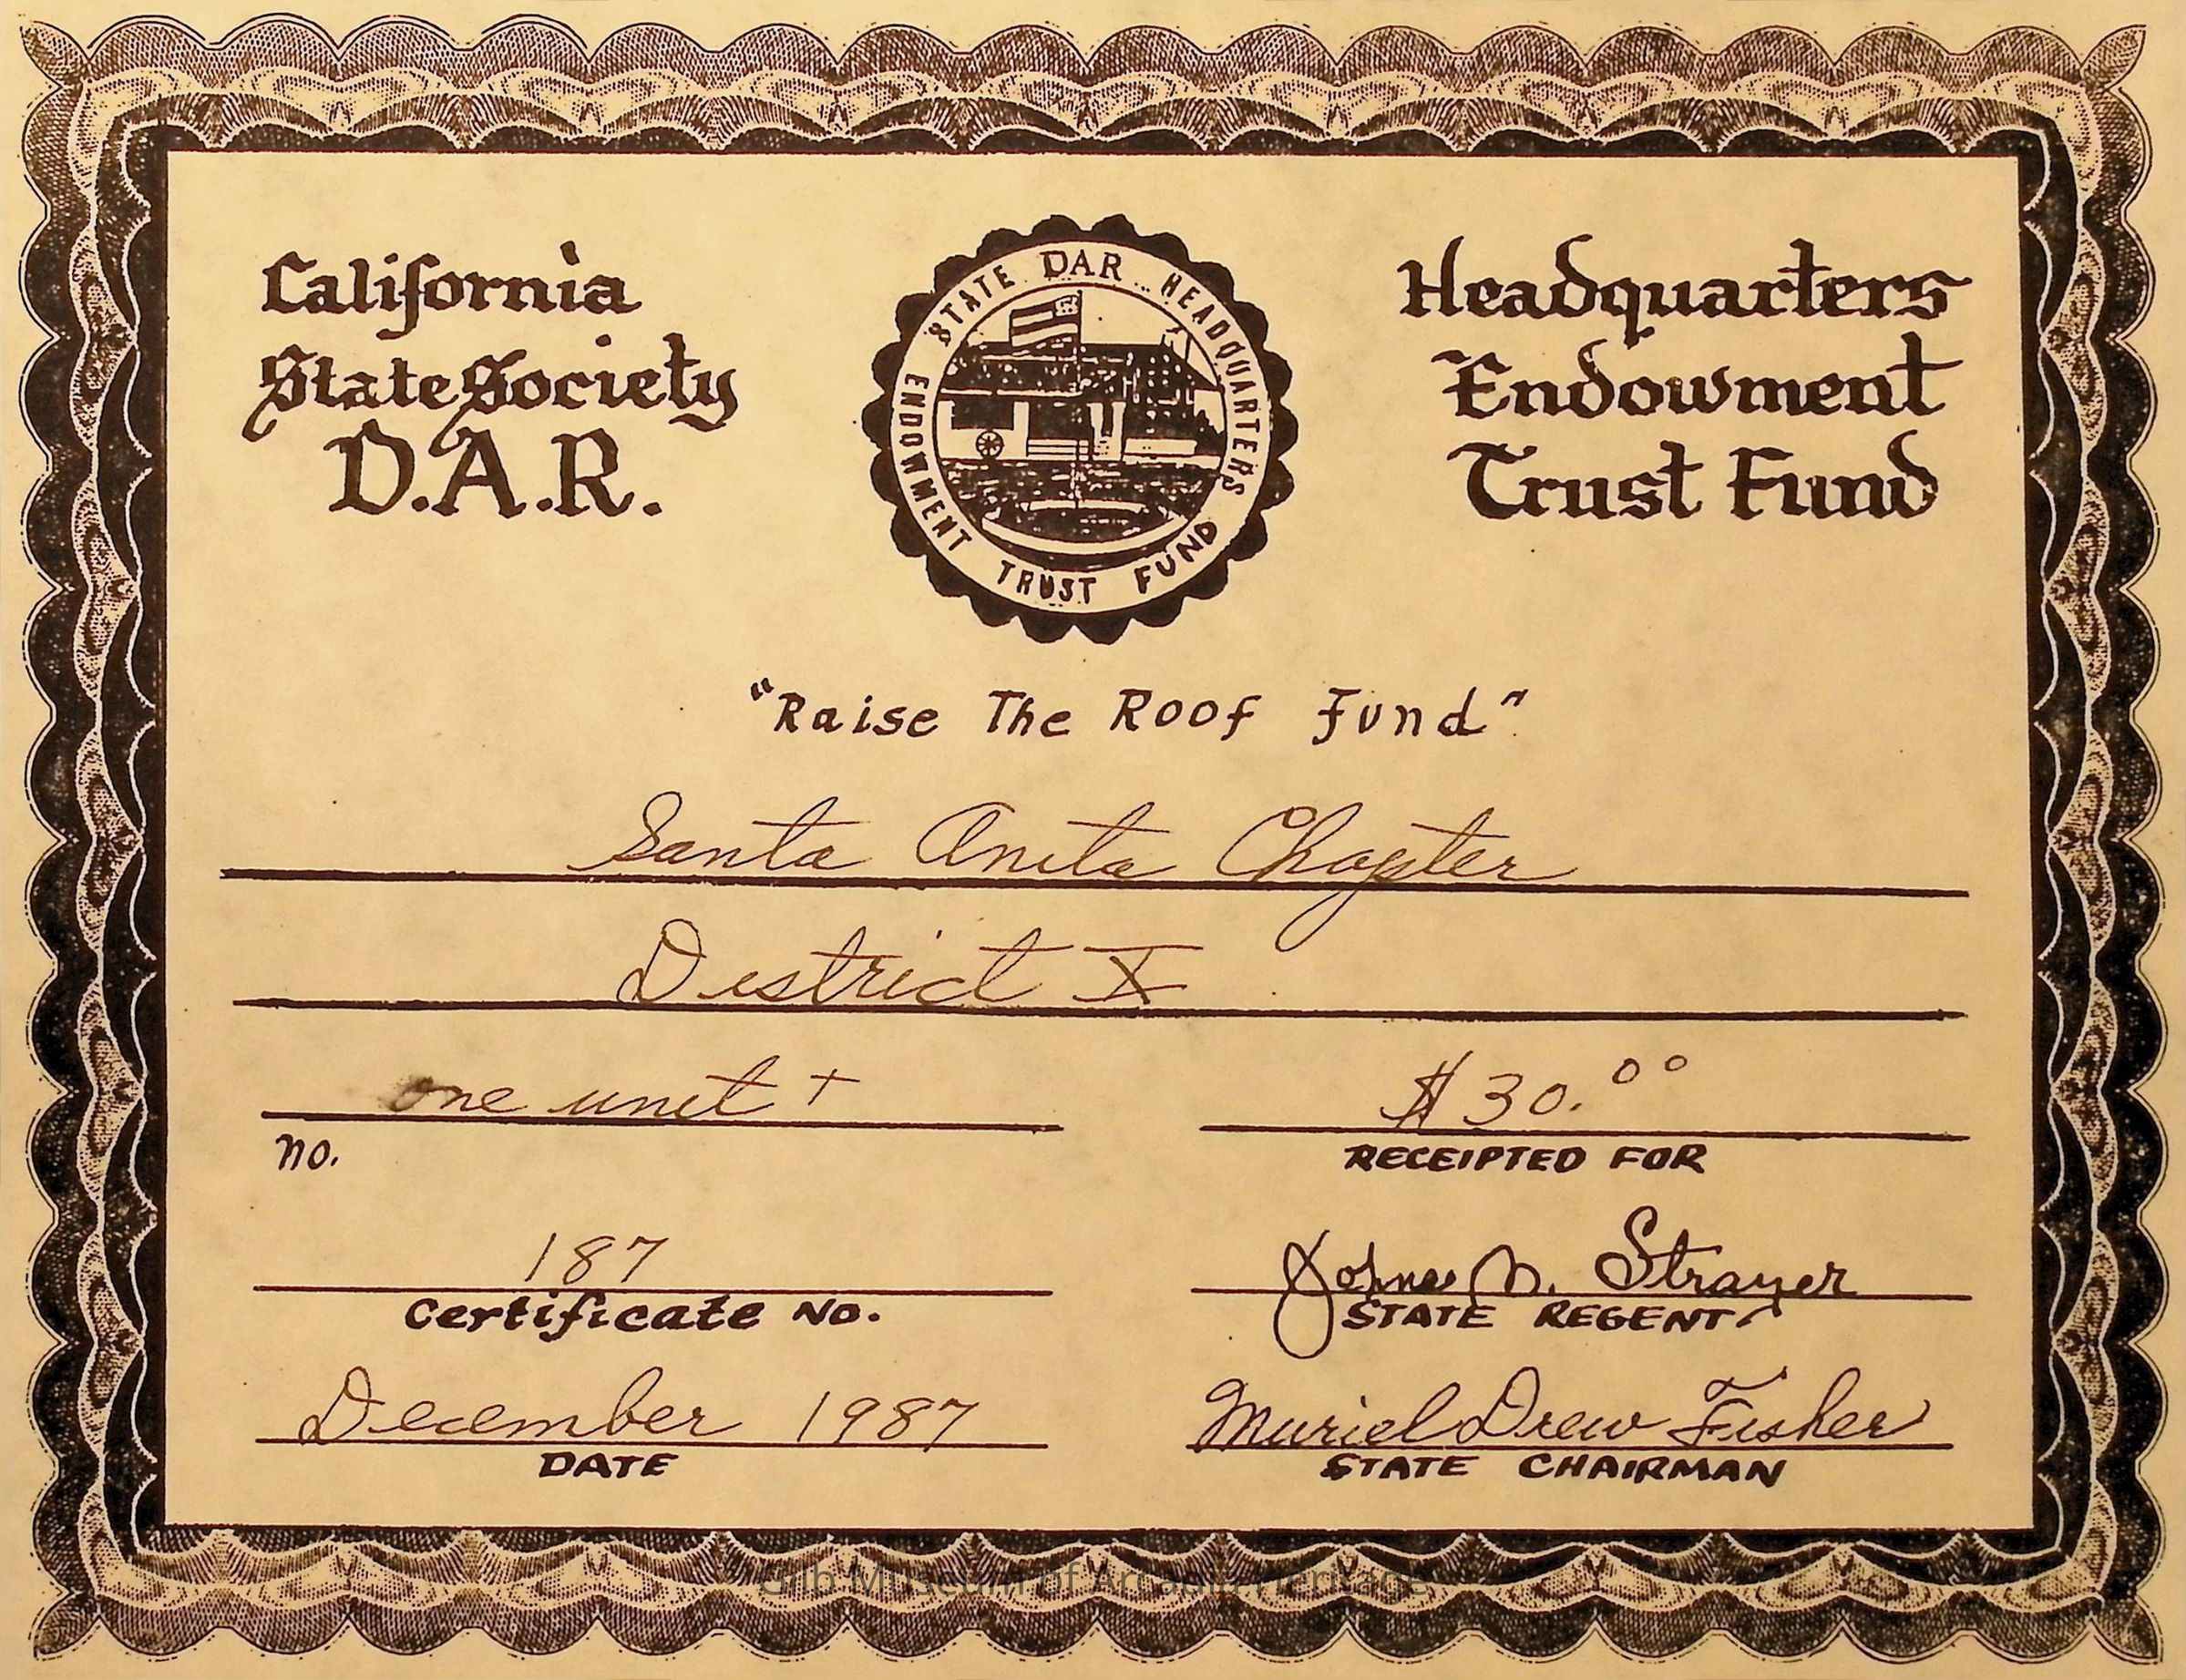 California
State Society
D.A.R.
STATE DAR HEADQUARTERS
ENDOWMENT TRUST FUND
Headquarters
Endowment
Trust Fund
"Raise The Roof Fund"
Santa Anita Chapter
District X
one unit +
no.
$30.00
RECEIPTED FOR
187
Certificate No.
N. Strayer
STATE REGENT
December 1987
DATE
Muriel Drew Fisher
STATE CHAIRMAN
Museum of Arcadia Heritage